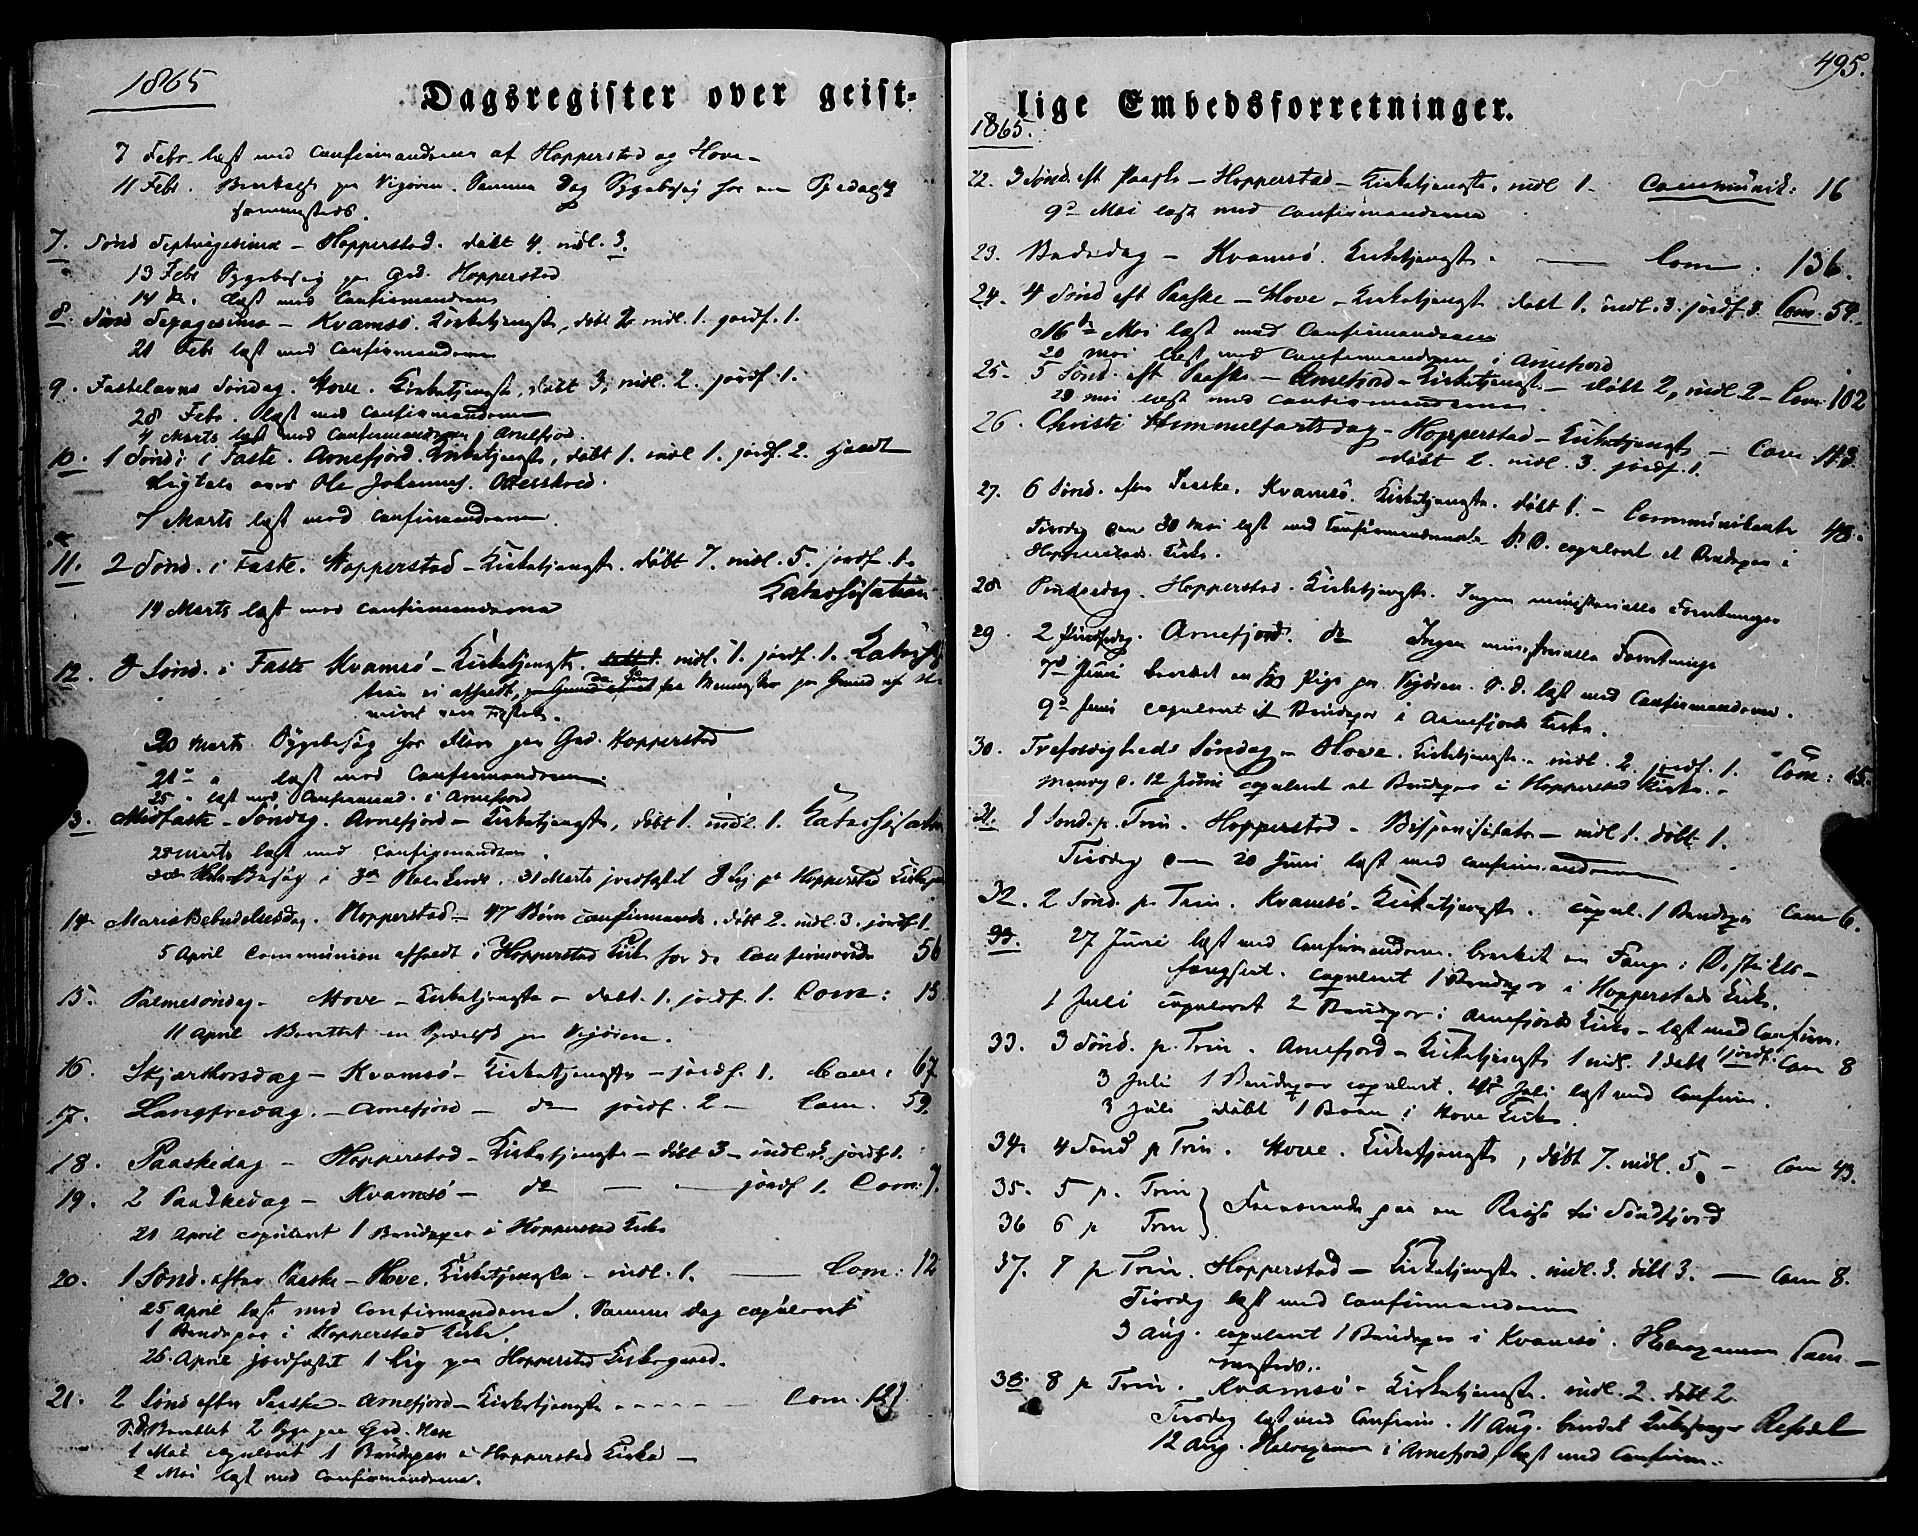 1865
Dagsregister over geist-
7 Febr. læst med Confirmanderne af Hopperstad og Hove
11 Febr. Beretteds paa Vigøren. Samme Dag Sygebesøg hos en Spedalsk
sammesteds.
7. Sønd Septuagesima – Hopperstad. døbt 4. indl. 3.
13 Febr Sygebesøg paa Grd. Hopperstad
14 do. læst med Confirmanderne
8. Sønd Sexagesima – Kvamsø. Kirketjeneste, døbt 2 indl. 1. jordf. 1.
21 Febr læst med Confirmanderne
9. Fastelavns Søndag. Hove. Kirketjeneste, døbt 3, indl. 2. jordf. 1.
28 Febr. læst med Confirmanderne
4 Marts læst med Confirmanderne i Arnefjord.
10. 1 Sønd: i Faste. Arnefjord. Kirketjeneste, døbt 1. indl 1. jordf. 2. holdt
Ligtale over Ole Johannes.
7 Marts læst med Confirmanderne.
11. 2 Sønd. i Faste. Hopperstad – Kirketjeneste. døbt 7. indl. 5. jordf. 1.
Katechisation
14 Marts læst med Confirmanderne
12. 3 Sønd. i Faste Kvamsø – Kirketjeneste. indl. 1. jordf. 1. Katechis
tion ei afholdt, da faa Mennesker paa Grund af
20 Marts Sygebesøg hos paa Grd. Hopperstad
21 " læst med Confirmanderne.
25 " læst med Confirmand. i Arnefjord
13. Midfaste – Søndag. Arnefjord – Kirketjeneste, døbt 1. indl. 1. Katechisation
28 Marts læst med Confirmanderne.
31 Marts jordfæstet Lig paa Hopperstad Kirkegaard
14. Mariæ Bebudelsesdag. Hopperstad – 47 Børn confirmerede. døbt 2. indl. 3. jordf 1.
5 April Communion afholdt i Hopperstad Kirke for de Confirmerede 56
15. Palmesøndag – Hove – Kirketjeneste – døbt. 1. jordf. 1. Com: 13
11 April Berettet en paa Vigøren.
16. Skjærthorsdag – Kvamsø – Kirketjeneste – jordf. 1. Com: 67
17. Langfredag. – Arnefjord – do jordf. 2 – Com. 59.
18. Paaskedag – Hopperstad – Kirketjeneste – døbt 3 – indl. 3. jordf 1.
19. 2 Paaskedag – Kvamsø – do – jordf 1. Com: 7.
21 April copuleret 1 Brudepar i Hopperstad Kirke
20. 1 Sønd. efter Paaske – Hove. Kirketjeneste – indl. 1. — Com: 12
25 April læst med Confirmanderne. Samme dag copuleret
1 Brudepar i Hopperstad Kirke.
26. April jordfæstet 1 Lig paa Hopperstad Kirkegaard.
21. 2 Sønd efter Paaske – Arnefjord – Kirketjeneste - - - - - Com. 127.
S. D. Berettet 2 Syge paa Grd.
1 Mai copuleret 1 Brudepar i Hopperstad Kirke –
2 Mai læst med Confirmanderne.
495.
lige Embedsforretninger.
1865.
22. 3 Sønd. eft Paaske – Hopperstad – Kirketjeneste. indl 1. Communik: 16
9de Mai læst med Confirmanderne
23. Bededag – Kvamsø. Kirketjeneste. — Com. 136.
24. 4 Sønd eft Paaske – Hove – Kirketjeneste døbt 1. indl. 3. jordf 3. Com. 59.
16de Mai læst med Confirmanderne
20 Mai læst med Confirmanderne i Arnefjord
25. 5 Sønd. eft Paaske – Arnefjord – Kirketjeneste – døbt 2, indl. 2 – Com: 102
Mai læst med Confirmanderne.
26. Christi Himmelfartsdag – Hopperstad – Kirketjeneste – Com. 143.
døbt 2. indl. 3. jordf. 1.
27. 6 Sønd. efter Paaske. Kvamsø. Kirketjeneste. døbt 1. – Communikanter 48.
Tirsdag den 30 Mai læst med Confirmanderne S. D. copuleret et Brudepar i
Hopperstads Kirke.
28 Pindsedag. Hopperstad. Kirketjeneste. Ingen ministerielle Forretninger
29. 2 Pindsedag. Arnefjord. do Ingen ministerielle Forretninger
7de Juni berettet en syg Pige paa Vigøren. S. D. læst med Confirmanderne.
9de Juni copuleret et Brudepar i Arnefjords Kirke.
30. Trefoldigheds Søndag – Hove. Kirketjeneste. indl. 2. jordf. 1. Com: 15.
Mandag d. 12 Juni copuleret et Brudepar i Hopperstad Kirke. –
31. 1 Sønd. p. Trin. Hopperstad – Bispevisitats – indl 1. døbt 1.
Tirsdag den 20 Juni læst med Confirmanderne
32. 2 Sønd. p. Trin. Kvamsø – Kirketjeneste. copul. 1 Brudepar Com 6.
33. 27 Juni læst med Confirmanderne. berettet en Fange i Distrikts-
fængslet. copuleret 1 Brudepar i Hopperstads Kirke.
1 Juli copuleret 2 Brudepar i Arnefjords Kirke – læst med Confirm.
33. 3 Sønd. p. Trin. Arnefjord – Kirketjeneste 1 indl. 1 døbt 1 jordf. Com 8
3 Juli 1 Brudepar copuleret. Juli læst med Confirm.
3 Juli døbt 1 Barn i Hove Kirke.
34. 4 Sønd p Trin. Hove. Kirketjeneste, døbt 7. indl. 5. – Com 43.
35. 5 p. Trin } Fraværende paa en Reise til Søndfjord
36 6 p Trin
37. 7 p Trin. Hopperstad – Kirketjeneste. indl. 3. døbt 3. — Com 8.
Tirsdag læst med Confirmanderne
3 Aug. copuleret 1 Brudepar i Kvamsø. Sam-
mesteds.
38. 8 p Trin. Kvamsø – Kirketjeneste. indl. 2. døbt 2
Tirsdag læst med Confirm. 11 Aug. Kirkesanger Refsdal
12 Aug. i Arnefjord, læst med Confirm.